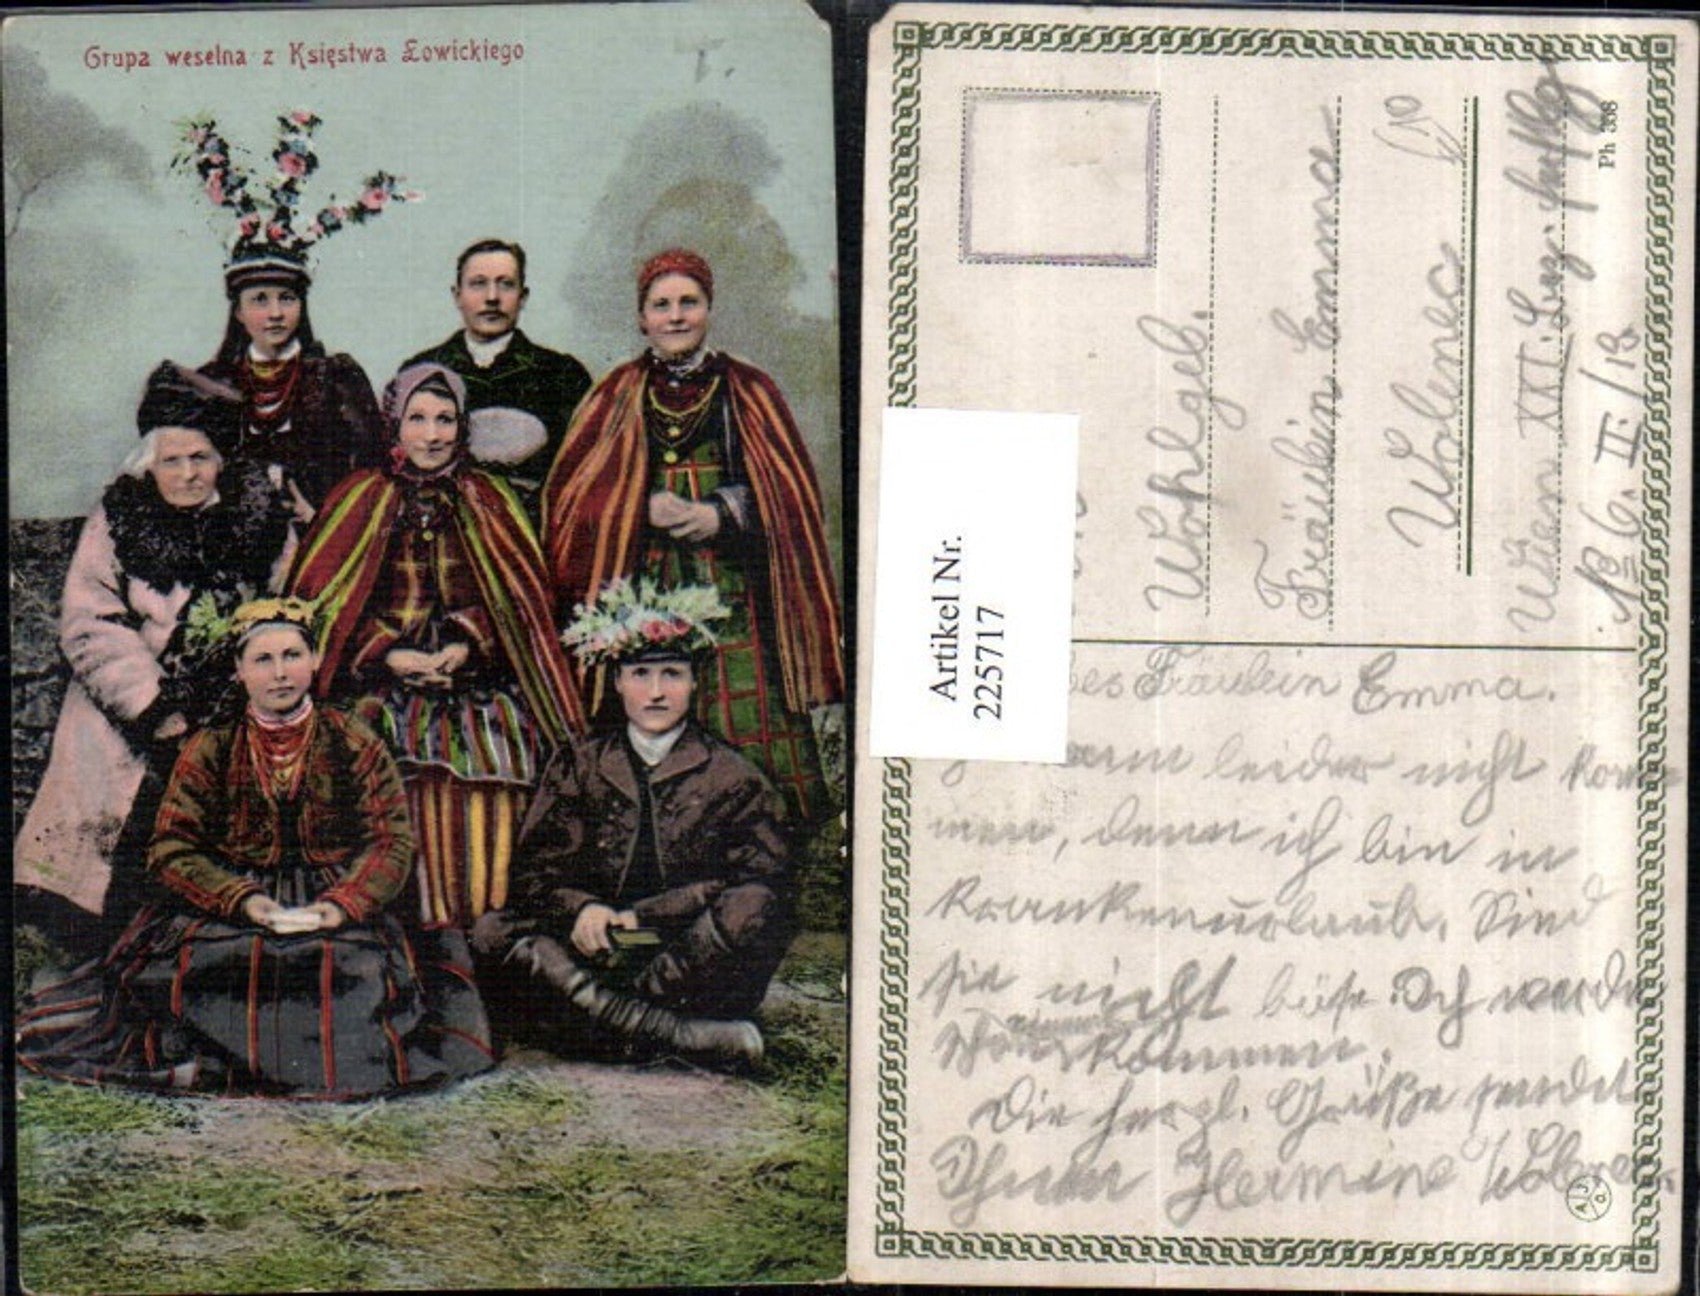 Grupa weselna z Księstwa Łowickiego
Artikel Nr.
225717
Wohlgeb.
Fräulein Emma
Wolenec
Wien XXI.
No 6. II/18
Ph 338
Fräulein Emma.
leider nicht kom
men, denn ich bin in
Krankenurlaub. Sind
sie nicht böse. Ich werde
kommen.
Die herzl. Grüße sendet
Ihnen Hermine